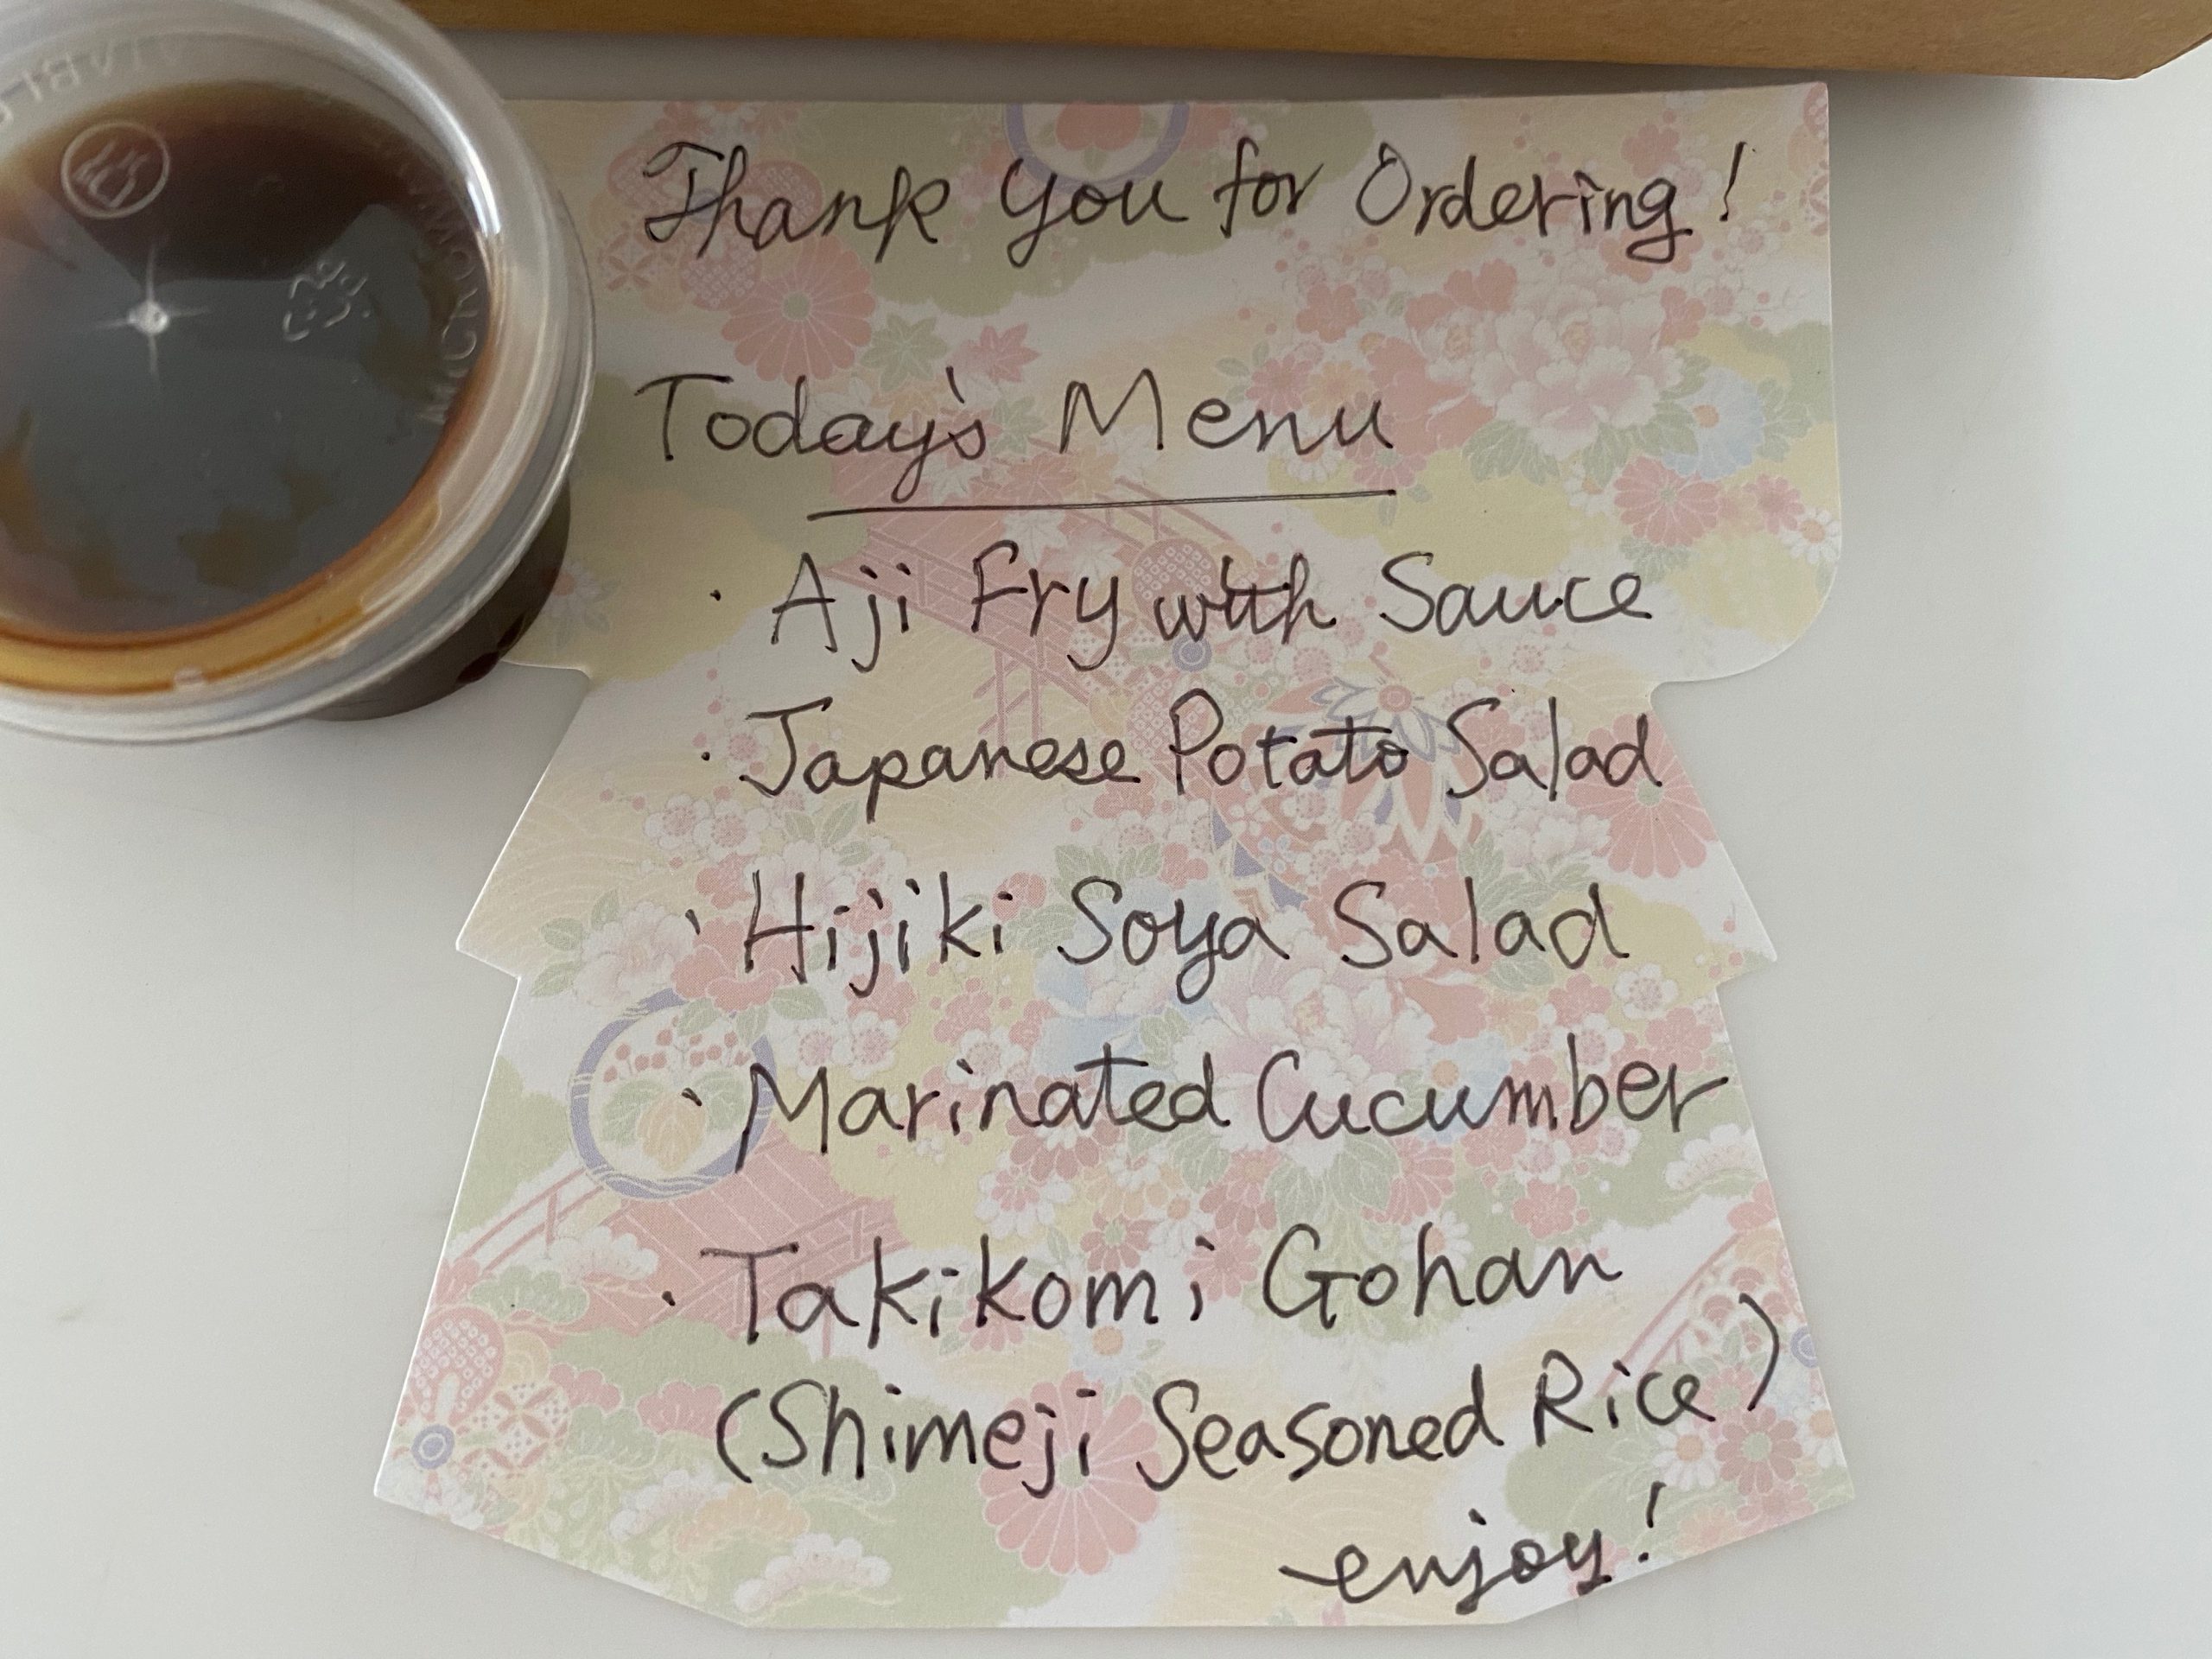 Thank you for Ordering!
Today's Menu
· Aji Fry with Sauce
· Japanese Potato Salad
· Hijiki Soya Salad
· Marinated Cucumber
· Takikomi Gohan
(Shimeji Seasoned Rice)
enjoy!